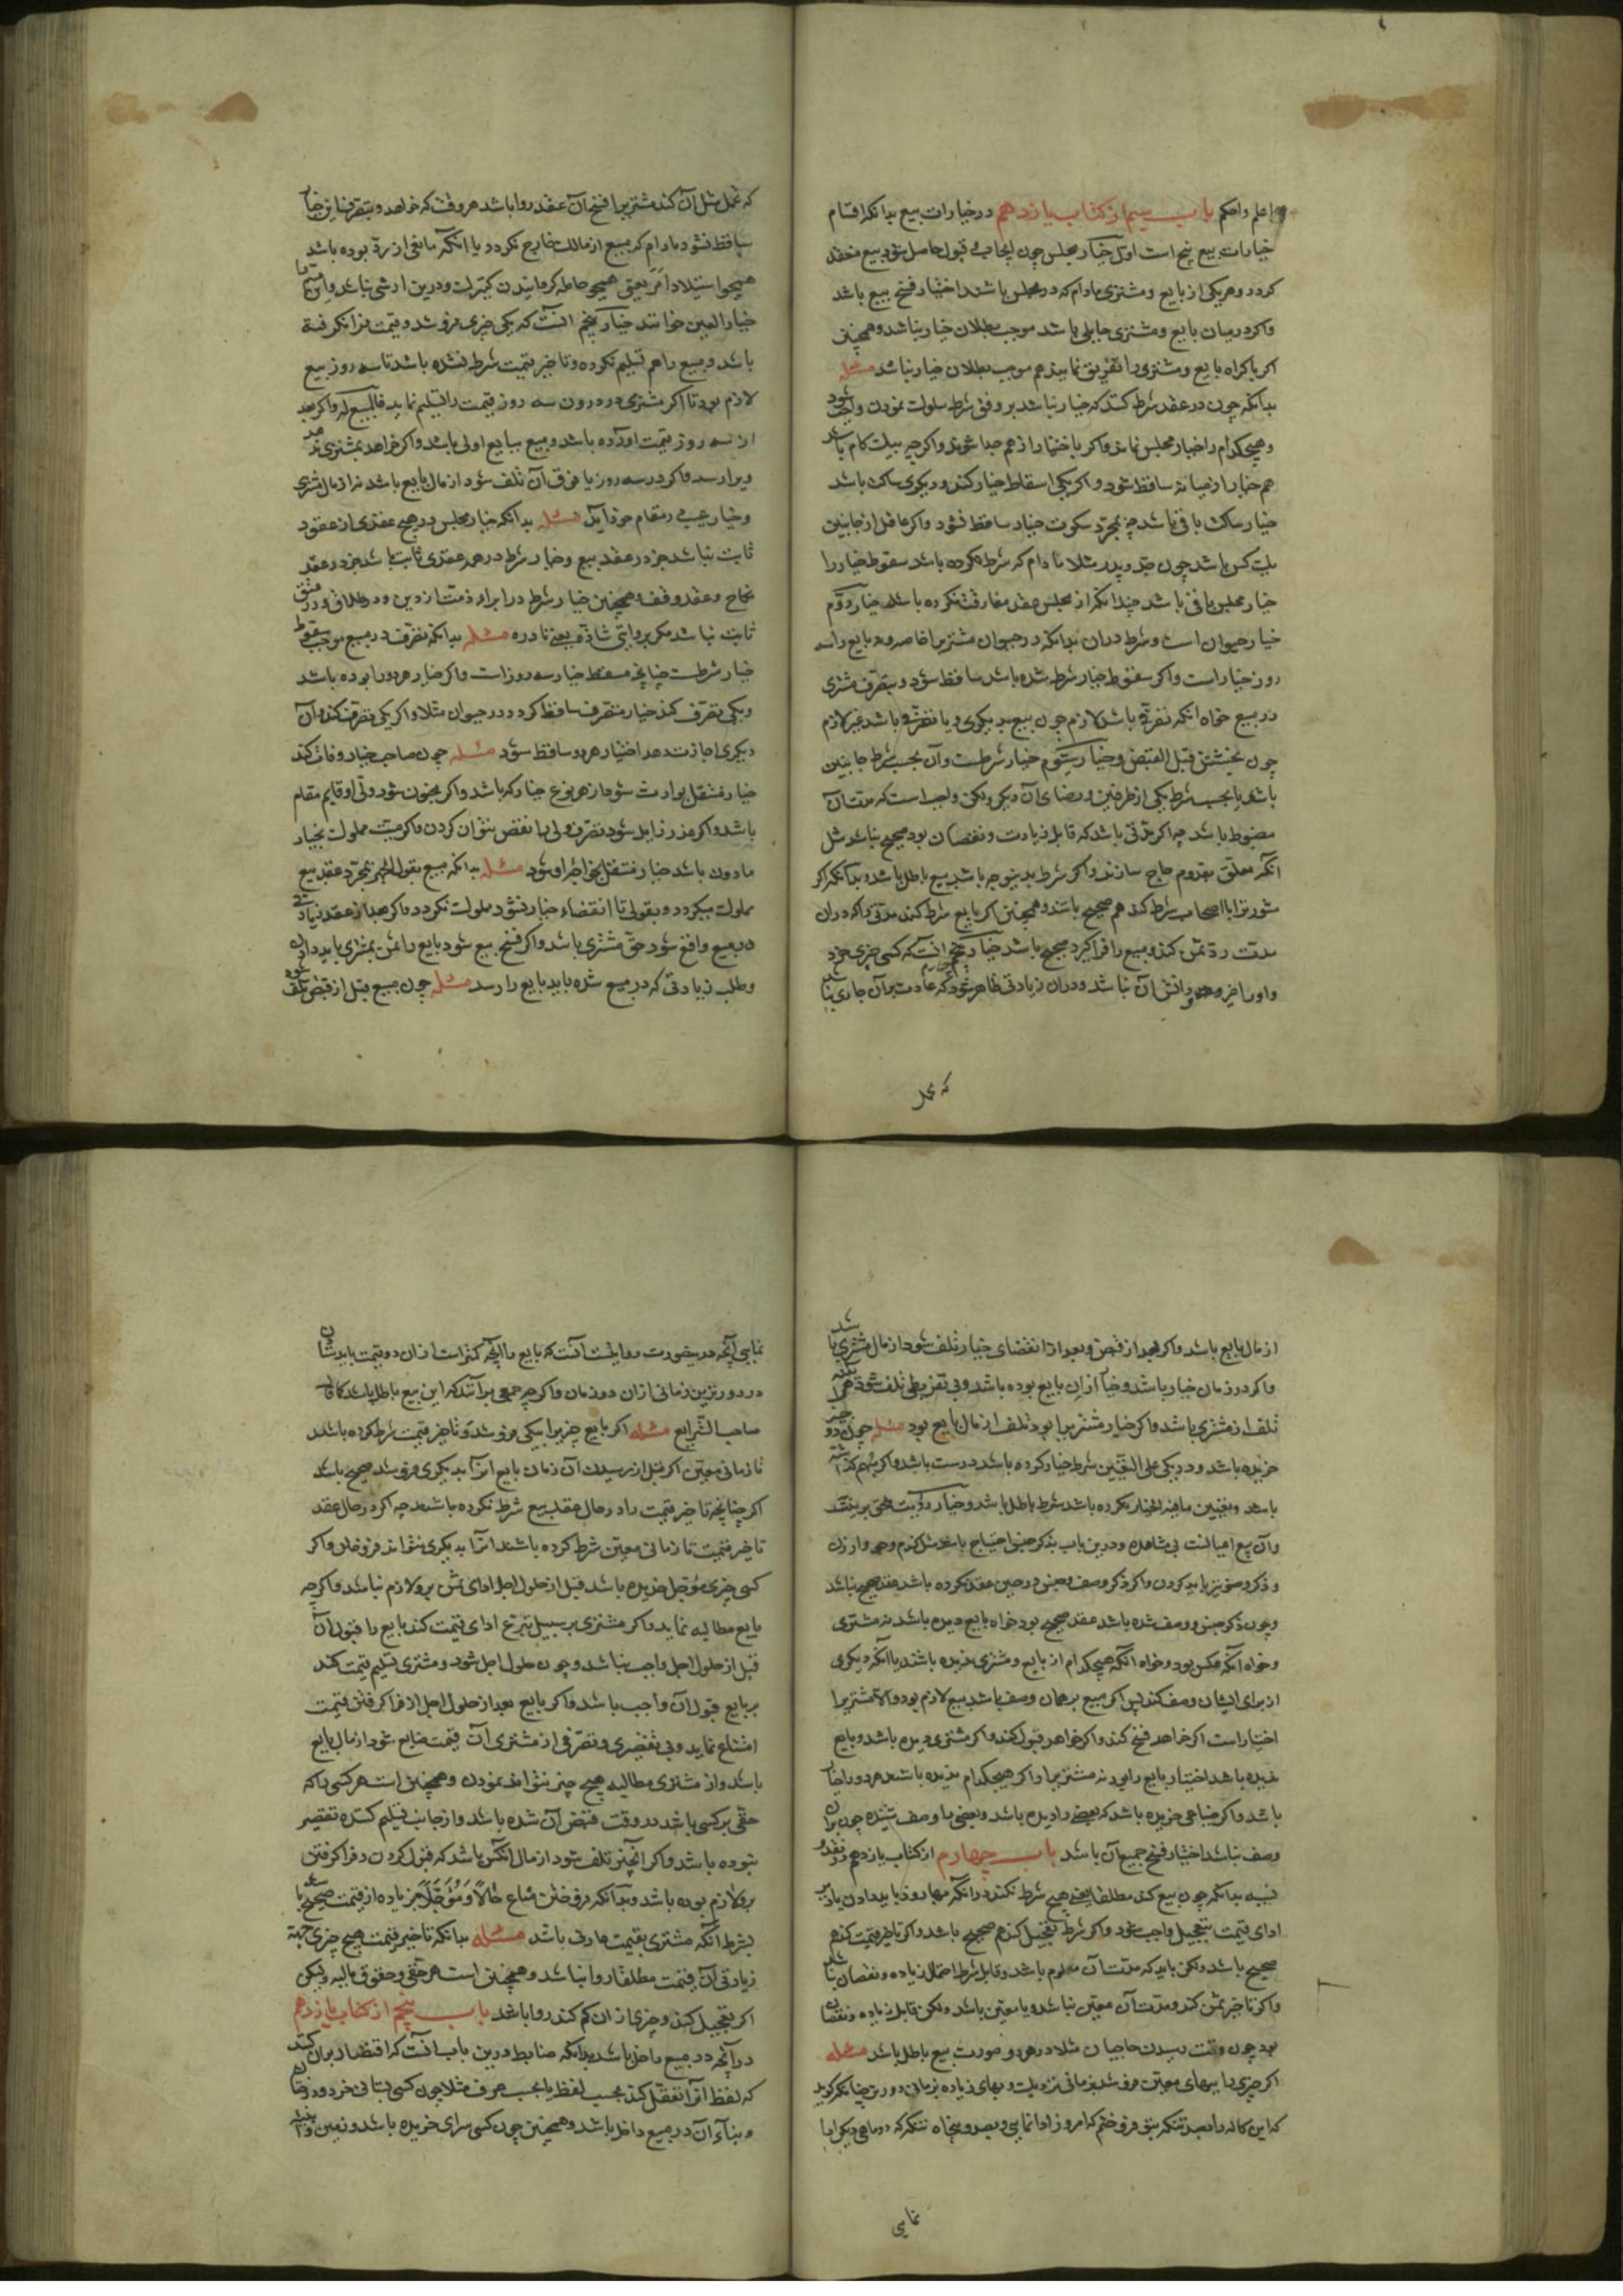 اعلم واحکم باب سیم از کتاب یازدهم در خیارات بیع بدانکه اقسام
خیارات بیع پنج است اول خیار مجلس چون ایجاب و قبول حاصل شود بیع منعقد
کردد و هر یکی از بایع و مشتری مادام که در مجلس باشند اختیار فسخ بیع باشد
واکر درمیان بایع و مشتری حایلی باشد موجب بطلان خیار نباشد و همچنین
اکر باکراه بایع و مشتری را تفریق نمایند هم موجب بطلان خیار نباشد مسئله
بدانکه چون در عقد شرط کنند که خیار نباشد بر وفق شرط سلوک نمودن واجب شود
و هیچکدام را خیار مجلس نماند واکر باختیار از هم جدا شوند واکرچه بیک کام باشد
هم خیار از میانه ساقط شود و اکر یکی اسقاط خیار کند و دیکری ساکت باشد
خیار ساکت باقی باشد چه بمجرد سکوت خیار ساقط نشود واکر عاقد از جانبین
یک کس باشد چون جد و پدر مثلا مادام که شرط نکرده باشد سقوط خیار را
خیار مجلس باقی باشد چندانکه از مجلس عقد مفارقت نکرده باشد خیار دوم
خیار حیوان است و شرط دران بدانکه در حیوان مشتریرا خاصه نه بایع را سه
روز خیار است واکر سقوط خیار شرط شده باشد ساقط شود و بتصرف مشتری
در مبیع خواه آنکه تصرفی باشد لازم چون بیع بدیکری و یا تصرفی باشد غیر لازم
چون بخشش قبل القبض و خیار سیوم خیار شرطست و آن بحسب شرط جانبین
باشد یا بحسب شرط یکی از طرفین و رضای آن دیکر ولکن واجب است که مدت آن
مضبوط باشد چه اکر مدتی باشد که قابل زیادت و نقصان بود صحیح نباشد مثل
آنکه معلق بقدوم حاج سازند واکر شرط بدینوجه باشد بیع باطل باشد و بدانکه اکر
شور تراباصحاب شرط کند هم صحیح باشد و همچنین اکر بایع شرط کند مدتی را که دران
مدت رد ثمن کند و مبیع را فرا کیرد صحیح باشد خیار چهارم آنست که کسی چیزی خرد
و او را خبر و دانش آن نباشد و دران زیادتی ظاهر شود که عادت بران جاری نباشد
که تحمل
که تحمل مثل آن کند مشتریرا فسخ آن عقد روا باشد هر وقت که خواهد و بتصرف این خیار
ساقط نشود مادام که مبیع از مالک خارج نکردد یا آنکه مانعی از رد بوده باشد
همچو استیلاد امه یعنی همچو حامله کرمانیدن کنیزک و درین ارشی نباشد و این قسم را
خیار الغبن خوانند خیار پنجم آنست که یکی چیزی بفروشد و قیمت نرا نکرفته
باشد و مبیع را هم تسلیم نکرده و تاخیر قیمت شرط نشده باشد تا سه روز بیع
لازم بود تا اکر مشتری در درون سه روز قیمت را تسلیم نماید فالمبیع له واکر بعد
از سه روز قیمت آورده باشد و مبیع ببایع اولی باشد واکر خواهد بمشتری دهد
ویرا رسد واکر در سه روز یا فوق آن تلف شود از مال بایع باشد نه از مال مشتری
و خیار عیب در مقام خود آید مسئله بدانکه خیار مجلس در هیچ عقدی از عقود
ثابت نباشد جز در عقد بیع و خیار شرط در همه عقدی ثابت باشد جز در عقد
نکاح و عقد وقف و همچنین خیار شرط در ابراء ذمت از دین و در طلاق و در عتق
ثابت نباشد مکر بروایتی شاذه یعنی نادره مسئله بدانکه تصرف در مبیع موجب سقوط
خیار شرطست چنانچه مسقط خیار سه روز است واکر خیار هر دو را بوده باشد
و یکی تصرف کند خیار متصرف ساقط کردد در حیوان مثلا واکر یکی تصرف کند و آن
دیکری اجازت دهد اختیار هر دو ساقط شود مسئله چون صاحب خیار وفات کند
خیار منتقل بوارث شود از هر نوع خیار که باشد واکر مجنون شود ولی او قایم مقام
باشد واکر عذر زایل شود تصرف ولی را نقض نتوان کردن واکر میت مملوک بخیار
مادون باشد خیار منتقل بخواجۀ او شود مسئله بدانکه مبیع بقول اشهر بمجرد عقد بیع
مملوک میکردد و بقولی تا انقضاء خیار نشود مملوک نکردد واکر بعد از عقد زیادتی
در مبیع واقع شود حق مشتری باشد واکر فسخ بیع شود بایع را ثمن بمشتری باید داد
و طلب زیادتی که در مبیع شده باید بایع را رسد مسئله چون مبیع قبل از قبض تلف شود
از مال بایع باشد واکر بعد از قبض و بعد از انقضای خیار تلف شود از مال مشتری باشد
واکر در زمان خیار باشد و خیار ازان بایع بوده باشد و بی تفریطی تلف شود هر آینه
تلف از مشتری باشد واکر خیار مشتریرا بود تلف از مال بایع بود مسئله چون دو چیز
خریده باشد و در یکی علی التعیین شرط خیار کرده باشد درست باشد واکر مبهم کذاشته
باشد و تعیین ما فیه الخیار نکرده باشد شرط باطل باشد و خیار رؤیت
و آن بیع اعیانست بی مشاهده و درین باب بذکر جنس احتیاج باشد مثل کندم و جو و ارزن
و ذکر وصف نیز باید کردن واکر ذکر وصف و جنس در حین عقد نکرده باشد عقد صحیح نباشد
و چون ذکر جنس و وصف شده باشد عقد صحیح بود خواه بایع دیده باشد نه مشتری
و خواه آنکه عکس بود و خواه آنکه هیچکدام از بایع و مشتری ندیده باشند یا آنکه دیکری
از برای ایشان وصف کند پس اکر مبیع بر همان وصف باشد بیع لازم بود والا مشتریرا
اختیار است اکر خواهد فسخ کند واکر خواهد قبول کند واکر مشتری دیده باشد و بایع
ندیده باشد اختیار بایع را بود نه مشتریرا واکر هیچکدام ندیده باشند هر دو را خیار
باشد واکر ضیاعی خریده باشد که بعضی را دیده باشد و بعضی را وصف شنیده چون بران
وصف نباشد اختیار فسخ جمیع آن باشد باب چهارم از کتاب یازدهم در نقد و
نسیه بدانکه چون بیع کند مطلقا یعنی هیچ شرط نکند در آنکه بها زود باید دادن یا دیر
ادای قیمت بتعجیل واجب شود واکر شرط تعجیل کند هم صحیح باشد واکر تاخیر قیمت کند هم
صحیح باشد ولکن باید که مدت آن معلوم باشد و قابل شرط احتمال زیاده و نقصان نباشد
واکر تاخیر ثمن کند و مدت آن معین نباشد و یا معین باشد ولکن قابل زیاده و نقصان
بود چون وقت رسیدن حاجیان مثلا در هر دو صورت بیع باطل باشد مسئله
اکر چیزی را ببهای معین فروشد بزمانی نزدیک و بهای زیاده بزمانی دورتر چنانکه کوید
که این کاله را بصد تنکه بتو فروختم که امروز ادا نمایی و بصد و پنجاه تنکه که دو ماهی دیکر ادا
نمایی
نمایی آنچه درین صورت روایتست آنست که بایع را آنچه کمتر است ازان دو قیمت باید ستان
در دورترین زمانی ازان دو زمان واکرچه جمعی برآنند که این بیع باطل باشد کما قال
صاحب الشرایع مسئله اکر بایع چیزیرا بیکی فروشد و تاخیر قیمت شرط کرده باشد
تا زمانی معین اکر قبل از رسیدن آن زمان بایع انرا بدیکری فروشد صحیح باشد
اکر چنانچه تاخیر قیمت را در حال عقد بیع شرط نکرده باشند چه اکر در حال عقد
تاخیر قیمت تا زمانی معین شرط کرده باشند آنرا بدیکری نتواند فروختن واکر
کسی چیزی مؤجل خریده باشد قبل از حلول اجل ادای ثمن برو لازم نباشد واکرچه
بایع مطالبه نماید واکر مشتری بر سبیل تبرع ادای قیمت کند بایع را قبول آن
قبل از حلول اجل واجب نباشد و چون حلول اجل شود و مشتری تسلیم قیمت کند
بر بایع قبول آن واجب باشد واکر بایع بعد از حلول اجل از فرا کرفتن قیمت
امتناع نماید و بی تقصیری و تصرفی از مشتری آن قیمت ضایع شود از مال بایع
باشد و از مشتری مطالبه هیچ چیز نتواند نمودن و همچنین است هر کسی را که
حقی بر کسی باشد در وقت قبض آن شده باشد و از جانب تسلیم کننده تقصیر
نبوده باشد واکر آنچیز تلف شود از مال آنکس باشد که قبول کردن و فرا کرفتن
برو لازم بوده باشد و بدانکه فروختن متاع حالاً و مؤجلاً بزیاده از قیمت صحیح باشد
بشرط آنکه مشتری بقیمت عارف باشد مسئله بدانکه تاخیر قیمت هیچ چیزی بجهة
زیادتی آن قیمت مطلقا روا نباشد و همچنین است هر حقی و حقوق مالیه ولیکن
اکر تعجیل کند و چیزی ازان کم کند روا باشد باب پنجم از کتاب یازدهم
در آنچه در مبیع داخل باشد بدانکه ضابطه درین باب آنست که اقتصار بران کنند
که لفظ آنرا نقل کند بحسب لفظ یا بحسب عرف مثلا چون کسی بستانی خرد درختان
و بناء آن در مبیع داخل باشد و همچنین چون کسی سرای خریده باشد و زمین و ابنیه